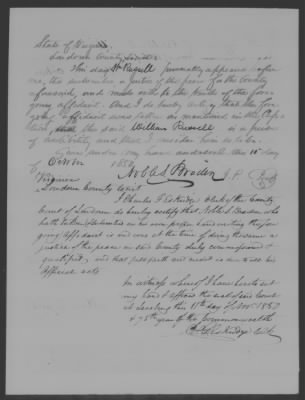 State of Virginia
Loudoun County
This day personally appeared before
me, the subscriber a justice of the peace for the County
aforesaid, and made oath to the truth of the fore
going affidavit. And I do hereby certify that the fore
going affidavit was taken as mentioned in the Cap
tion, the said William Russell is a person
of credibility, and that I
Given under my hand this day of
Noble S Braden J P
Virginia
Loudoun County
I Charles Eskridge Clerk of the County
Court of Loudoun do hereby certify that Noble S Braden who
hath in his own proper hand the fore
going affidavit is and was at the time of doing the same a
justice of the peace in said County duly commissioned &
qualified, and that full faith and credit is due to all his
official acts
In witness whereof I have hereto set
my hand & affixed the seal of said Court
at Leesburg this 11th day of Nov 1850
& 75th year of the Commonwealth
Eskridge Clk